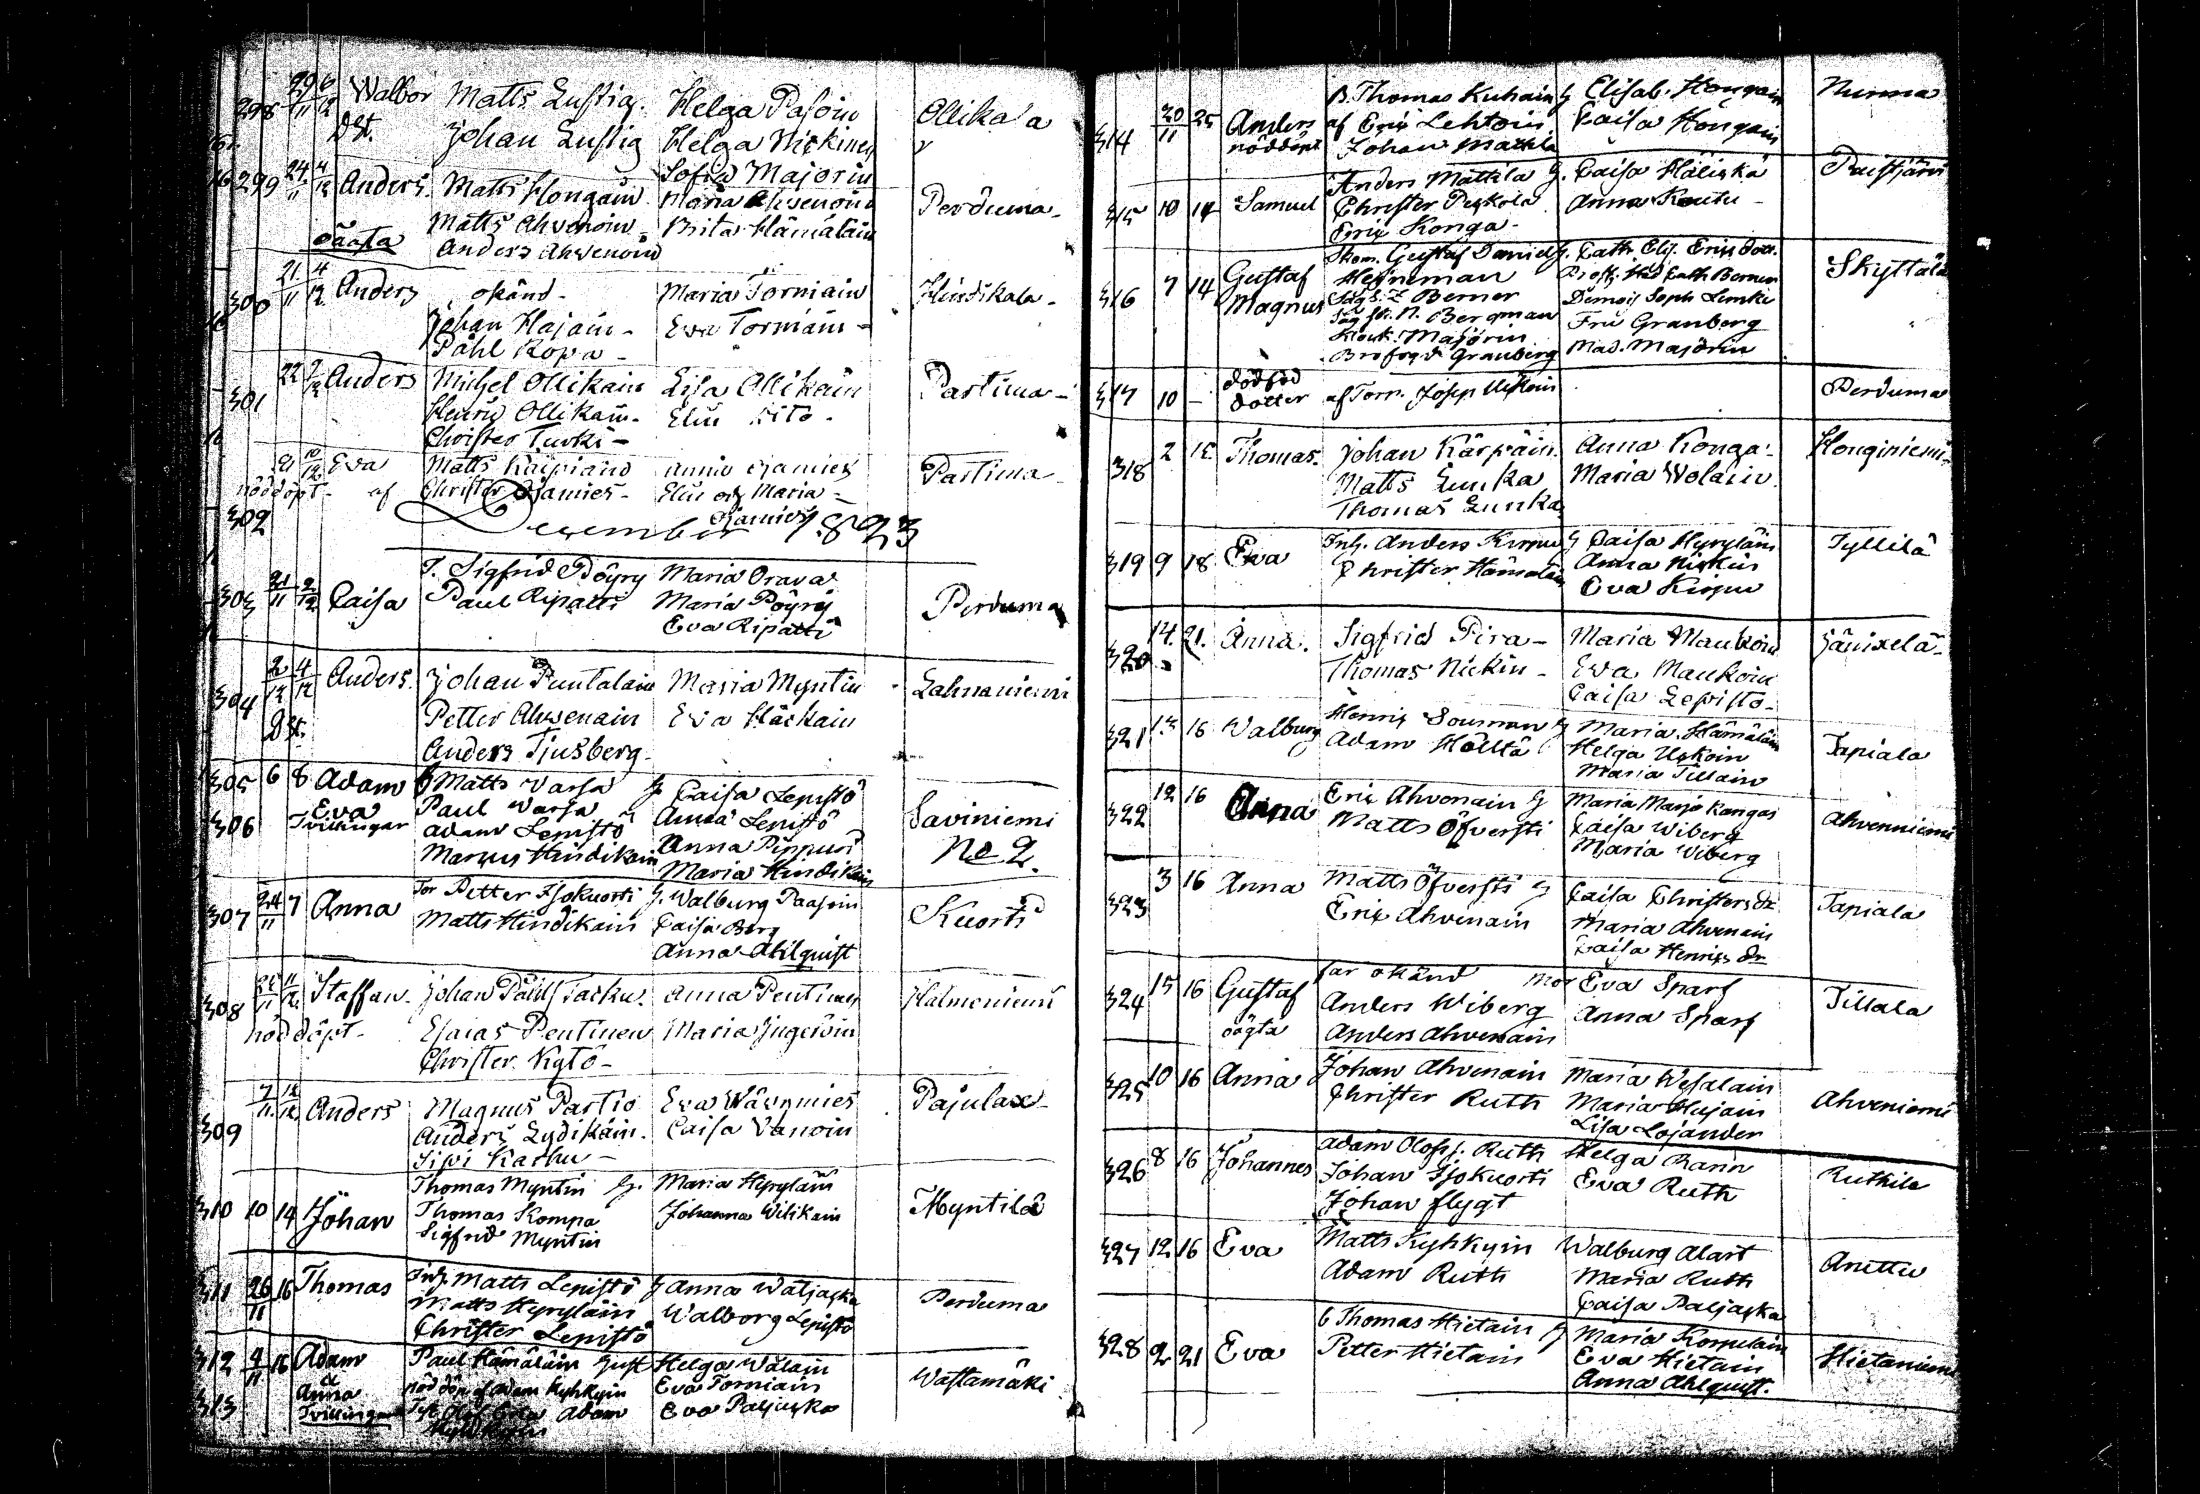 298 29/11 6/12 Walbor Matts Lustig. Helga Pasoin Ollikala
Dst. Johan Lustig Helga Nickinen
Sofia Majorin
299 24/11 4/12 Anders. Matts Hongain Maria Ahvenoin Perduma-
Matts Ahvenoin Brita Hämäläin
oäcta Anders Ahvenoin
300 21/11 4/12 Anders okänd- Maria Torniain Hindikala-
Johan Hajain- Eva Torniain-
Påhl Kopa-
301 22 Anders Michel Ollikain Lisa Ollikain Partima-
Henric Ollikain- Elin
Christer Turki-
21 10/12 Eva Matts Karpiain Partima
nöddöpt- af Christer Elin och Maria-
302
December 1823
303 21/11 9/12 Caisa T. Sigfrid Pöyry Maria Orava Perduma
Paul Ripatti Maria Pöyry
Eva Ripatti
304 2/12 4/12 Anders. Johan Puntalain Maria Myntin Lahnaniemi
Dst. Petter Ahvenain Eva Häckain
Anders Tjusberg-
305 6 8 Adam Matts Varsa Caisa Lepistö Saviniemi
306 Eva Paul Varsa Anna Lepistö No 2.
Tvillingar Adam Lepistö Anna Pippuri
Marcus Hindikain Maria Hindikain
307 24/11 7 Anna Tor Petter Isokuorti H. Walburg Paasoin Kuorti
Matts Hindikain Caisa Berg
Anna Ahlquist
308 25/11 11/12 Staffan. Johan Påhls Tarku. Anna Pentinen Halmeniemi
nöddöpt- Esaias Pentinen Maria Ingeroin
Christer Kytö-
309 7/11 12/12 Anders Magnus Partio Eva Wävymies Pajulax-
Anders Lydikäin. Caisa Vanoin
Sipi Karhu-
310 10 14 Johan Thomas Myntin H. Maria Hyryläin Myntilä
Thomas Kompa Johanna Wilikain
Sigfrid Myntin
311 26/11 16 Thomas Inh. Matts Lepistö H Anna Waljacka Perduma
Matts Hyryläin Walborg Lepistö
Christer Lepistö
312 4/11 16 Adam Paul Hämäläin Helga Wäläin Wästamäki
& Anna nöd döp af Adam Kyhkyin Eva Torniain
313 Tvillingar Adam Eva Paljacka
314 30/11 25 Anders B. Thomas Kuhain H Elisab. Hongain Nurma
nöddöpt af Eric Lehtoin Caisa Hongain
Johan Mattila
315 10 14 Samuel Anders Mattila H. Caisa Hälickä Paistjärvi
Christer Peskola Anna Koutu-
Eric Konga-
316 7 14 Gustaf Magnus Thom. Gustaf Daniels. Cath. Elis. Ericsdotter. Skyttälä
Heineman Cath Berner
Berner Demois Soph Limke
Bergman Fru Granberg
Klock. Majorin Mad. Majorin
Brofogd. Granberg
317 10 - dödföd dotter af Torn. Josep Perduma
318 2 12 Thomas. Johan Kärpäin. Anna Konga. Honginiemi-
Matts Lunka Maria Wolain.
Thomas Lunka
319 9 18 Eva Inh. Anders Kirpu H Caisa Hyryläin Tyllilä
Christer Hämäläin Anna Nickin
Eva Kirpu
320 14 21. Anna. Sigfrid Pira- Maria Maukoin Jänixelä-
Thomas Nickin- Eva Maukoin
Caisa Lepistö-
321 13 16 Walburg Henric Souman H Maria Hämäläin Tapiala
Adam Hölttä Helga Uskoin
Maria Tillain
322 12 16 Anna Eric Ahvenain H Maria Marjo Kangas Ahvenniemi
Matts Öfversti Caisa Wiberg
Maria Wiberg
323 3 16 Anna Matts Öfversti H Caisa Christersdr Tapiala
Eric Ahvenain Maria Ahvenain
Caisa Henrics dr
324 15 16 Gustaf far okänd mor Eva Sparf Tillala
oägta Anders Wiberg Anna Sparf
Anders Ahvenain
325 10 16 Anna Johan Ahvenain Maria Wesalain Ahveniemi
Christer Ruth Maria Hujain
Lisa Lojander
326 8 16 Johannes Adam Olofss. Ruth Helga Rann Ruthila
Johan Isokuorti Eva Ruth
Johan flygt
327 12 16 Eva Matts Kyhkyin Walburg Alart Anttu
Adam Ruth Maria Ruth
Caisa Paljacka
328 2 21 Eva b Thomas Hietain H Maria Korpelain Hietaniemi
Petter Hietain Eva Hietain
Anna Ahlquist.